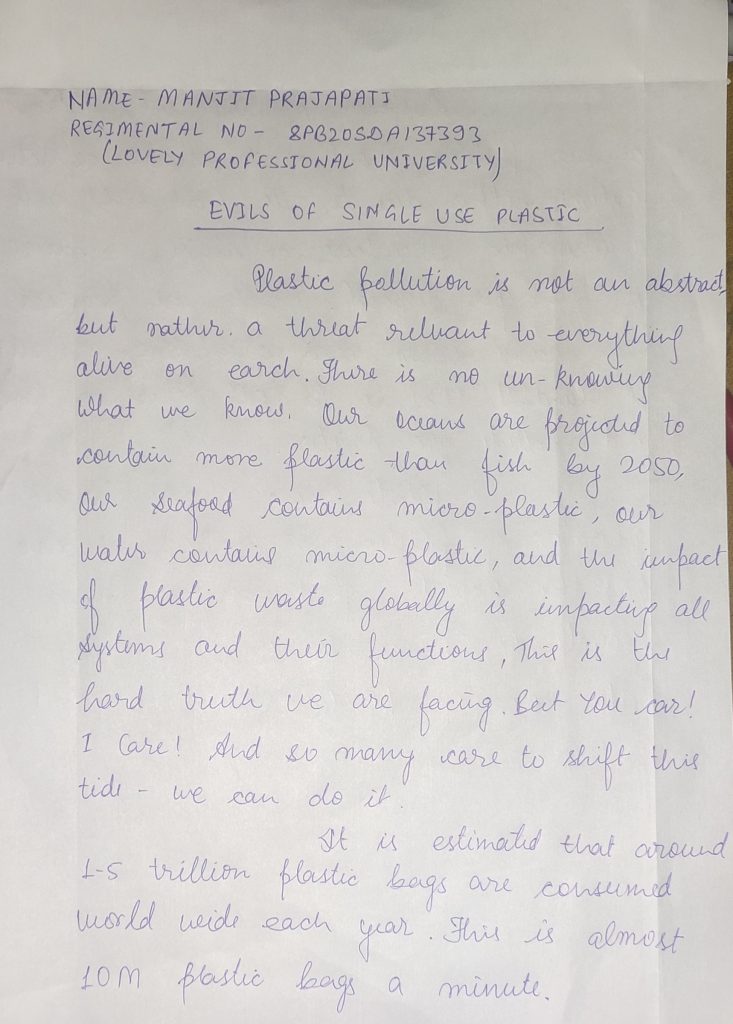 NAME - MANJIT PRAJAPATI
REGIMENTAL NO - 8PB20SDA137393
(LOVELY PROFESSIONAL UNIVERSITY)
EVILS OF SINGLE USE PLASTIC
Plastic pollution is not an abstract,
but rather. a threat reluant to everything
alive on earch. There is no un-knowing
what we know. Our oceans are projected to
contain more plastic than fish by 2050,
our seafood contains micro-plastic, our
water contains micro-plastic, and the impact
of plastic waste globally is impacting all
systems and their functions, This is the
hard truth we are facing. But You car!
I Care! And so many care to shift this
tide - we can do it.
It is estimated that around
1-5 trillion plastic bags are consumed
world wide each year. This is almost
10M plastic bags a minute.